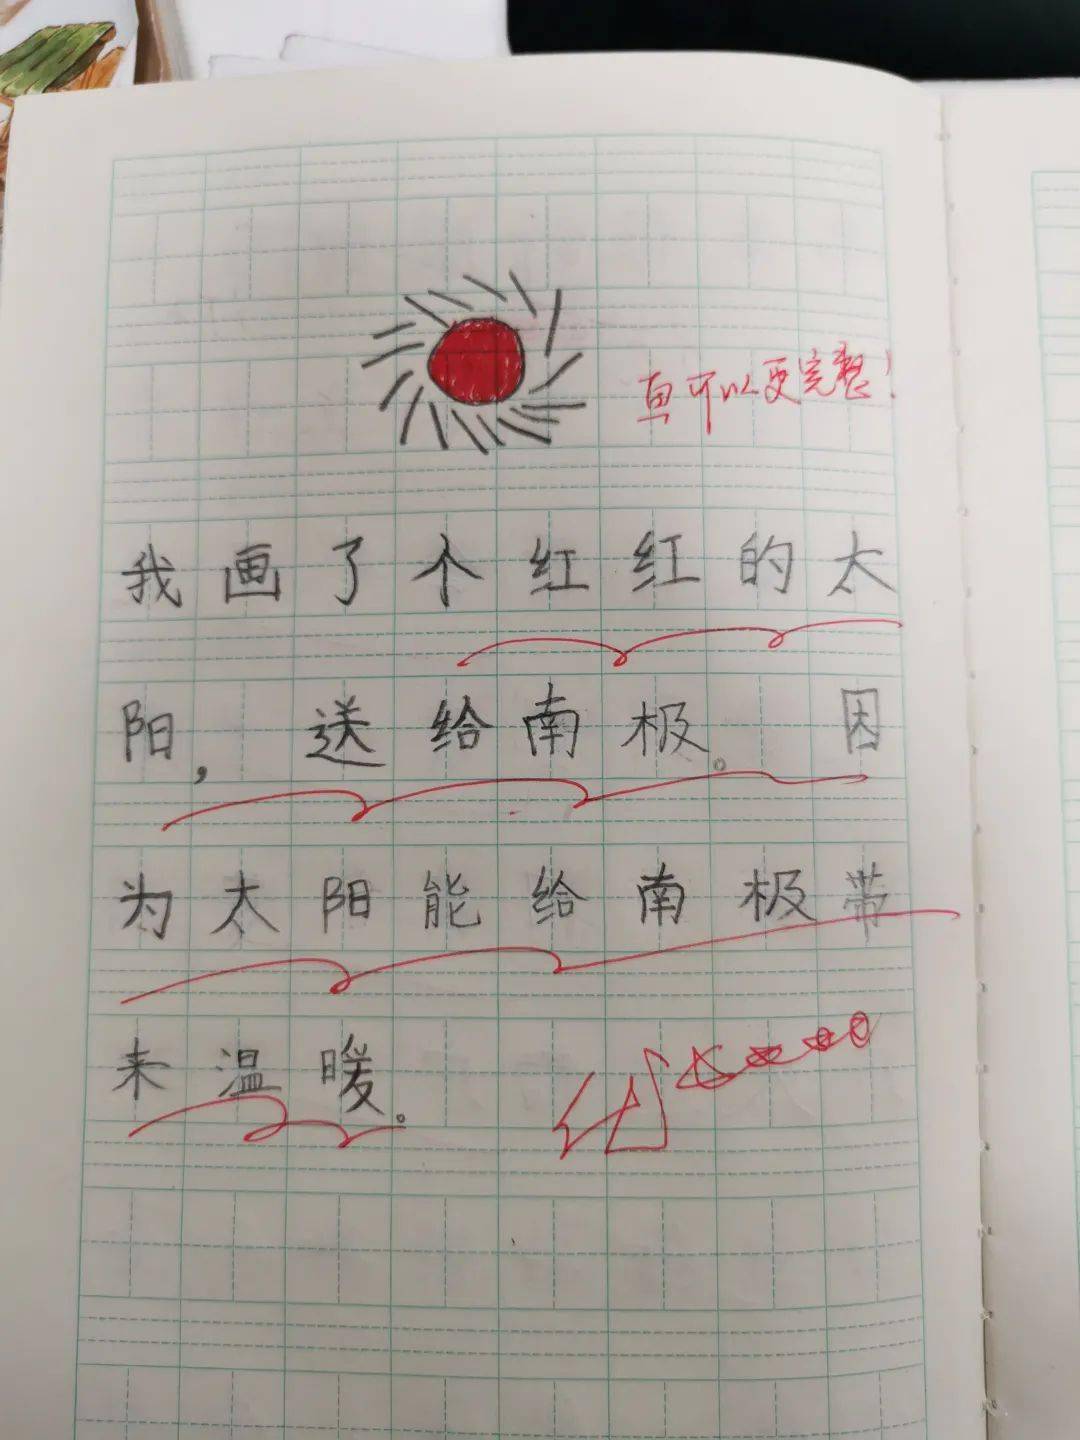 画可以更完整！
我画了个红红的太
阳，送给南极。因
为太阳能给南极带
来温暖。
优